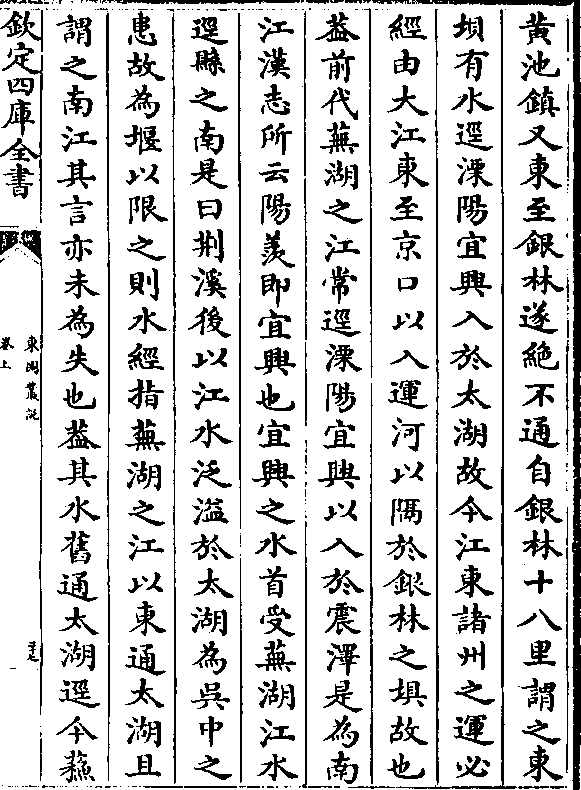 黄池鎮又東至銀林遂絶不通自銀林十八里謂之東
垻有水逕溧陽宜興入於太湖故今江東諸州之運必
經由大江東至京口以入運河以隔於銀林之垻故也
葢前代蕪湖之江常逕溧陽宜興以入於震澤是為南
江漢志所云陽羡即宜興也宜興之水首受蕪湖江水
逕縣之南是曰荆溪後以江水泛溢於太湖為吳中之
患故為堰以限之則水經指蕪湖之江以東通太湖且
謂之南江其言亦未為失也葢其水舊通太湖逕今蘇
欽定四庫全書
卷上